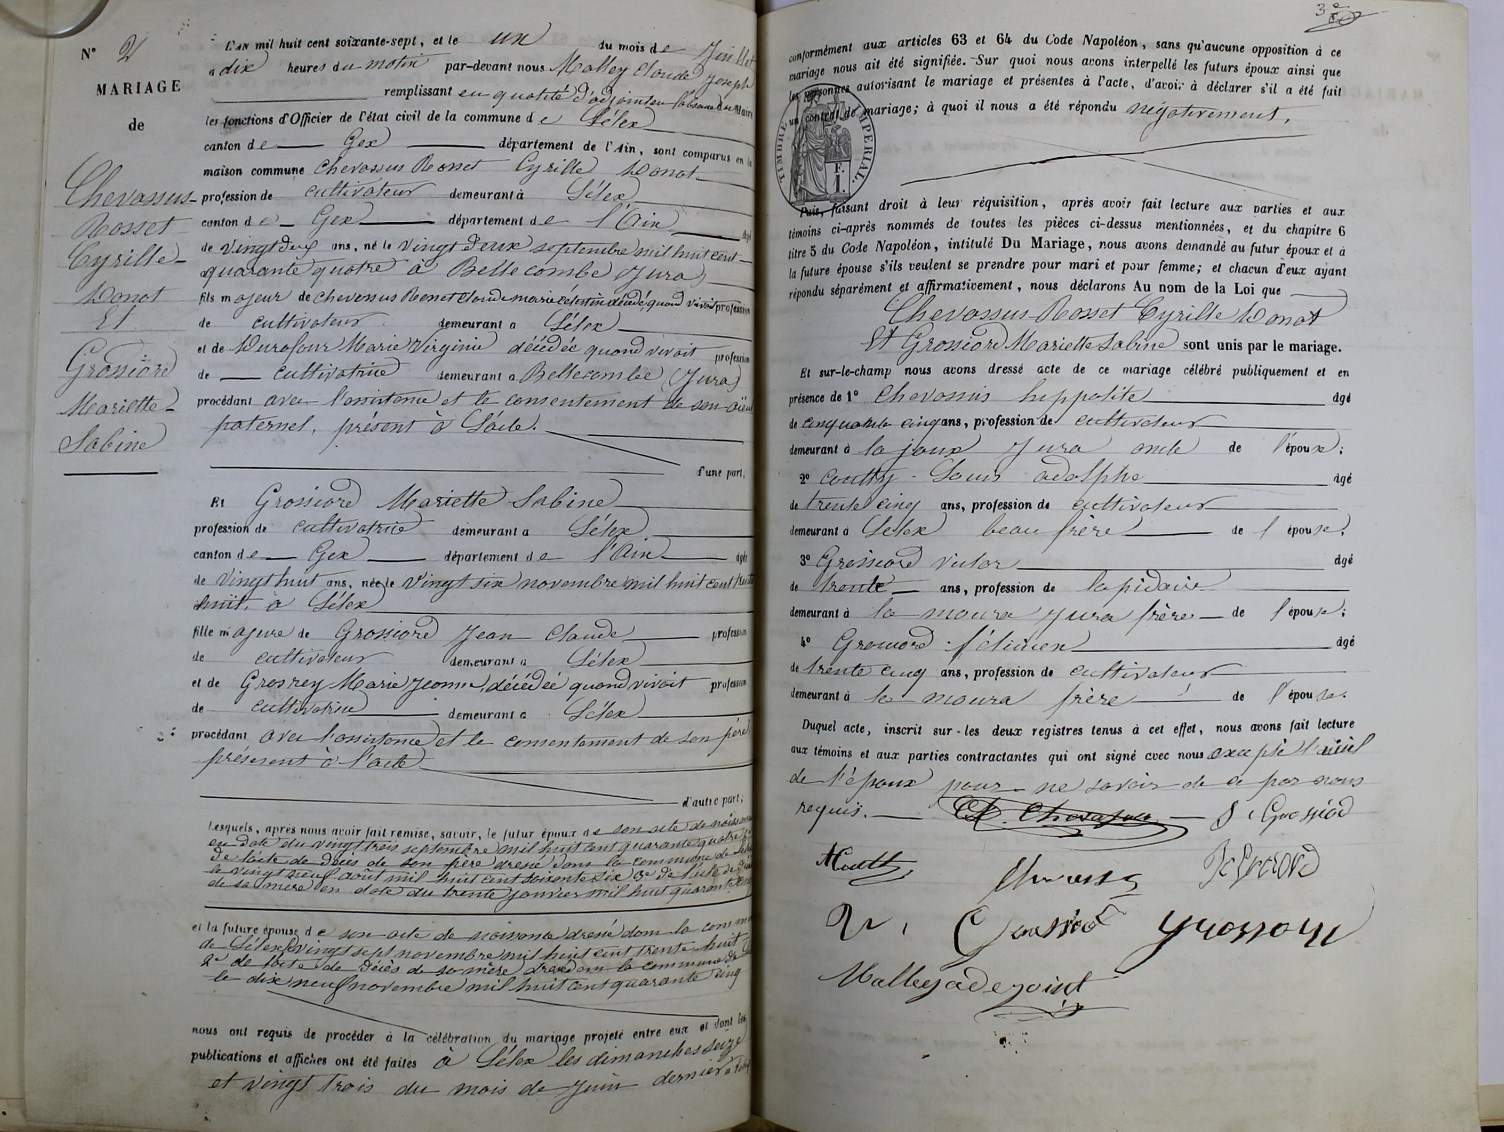 N° 2
MARIAGE
de
Chevassus-
Rosset
Cyrille
Donat
Et
Grossiord
Mariette
Sabine
L'AN mil huit cent soixante-sept, et le un du mois de Juillet
a dix heures du matin par-devant nous Malley Claude Joseph
remplissant en qualité d'adjoint en l'absence du Maire
les fonctions d'Officier de l'état civil de la commune de Lélex
canton de Gex département de l'Ain, sont comparus en la
maison commune Chevassus Rosset Cyrille Donat
profession de cultivateur demeurant à Lélex
canton de Gex département de l'Ain âgé
de vingt deux ans, né le vingt deux septembre mil huit cent
quarante quatre à Bellecombe (Jura)
fils majeur de Chevassus Rosset Claude marie célestin décédé, quand vivait profession
de cultivateur demeurant a Lélex
et de Durafour Marie Virginie décédée quand vivait profession
de cultivatrice demeurant a Bellecombe (Jura)
procédant avec l'assistance et le consentement de son aïeul
paternel, présent à l'acte.
d'une part,
Et Grossiord Mariette Sabine
profession de cultivatrice demeurant a Lélex
canton de Gex département de l'Ain âgée
de vingt huit ans, née le vingt six novembre mil huit cent trente
huit à Lélex
fille majeure de Grossiord Jean Claude profession
de cultivateur demeurant a Lélex
et de Grosrey Marie Jeanne, décédée quand vivait profession
de cultivatrice demeurant a Lélex
procédant avec l'assistance et le consentement de son père
présent à l'acte
d'autre part;
Lesquels, après nous avoir fait remise, savoir, le futur époux de son acte de naissance
en date du vingt trois septembre mil huit cent quarante quatre 2°
de l'acte de décès de son père dressé dans la commune de Lélex
le vingt neuf août mil huit cent soixante six 3° de l'acte de décès
de sa mère en date du trente janvier mil huit quarante
et la future épouse de son acte de naissance dressé dans la commune
de Lélex le vingt sept novembre mil huit cent trente huit
2° de l'acte de décès de sa mère dressé dans la commune de
le dix neuf novembre mil huit cent quarante cinq
nous ont requis de procéder à la célébration du mariage projeté entre eux et dont les
publications et affiches ont été faites à Lélex les dimanches seize
et vingt trois du mois de Juin dernier à
3e
conformément aux articles 63 et 64 du Code Napoléon, sans qu'aucune opposition à ce
mariage nous ait été signifiée. Sur quoi nous avons interpellé les futurs époux ainsi que
les personnes autorisant le mariage et présentes à l'acte, d'avoir à déclarer s'il a été fait
un contrat de mariage; à quoi il nous a été répondu négativement.
TIMBRE IMPERIAL.
F.
1.
Puis, faisant droit à leur réquisition, après avoir fait lecture aux parties et aux
témoins ci-après nommés de toutes les pièces ci-dessus mentionnées, et du chapitre 6
titre 5 du Code Napoléon, intitulé Du Mariage, nous avons demandé au futur époux et à
la future épouse s'ils veulent se prendre pour mari et pour femme; et chacun d'eux ayant
répondu séparément et affirmativement, nous déclarons Au nom de la Loi que
Chevassus-Rosset Cyrille Donat
Et Grossiord Mariette Sabine sont unis par le mariage.
Et sur-le-champ nous avons dressé acte de ce mariage célébré publiquement et en
présence de 1° Chevassus hippolite âgé
de cinquante cinq ans, profession de cultivateur
demeurant à la joux Jura oncle de l'épouse;
2° coutty Louis adolphe âgé
de trente cinq ans, profession de cultivateur
demeurant à Lélex beau frère de l'épouse;
3° Grossiord victor âgé
de trente ans, profession de lapidaire
demeurant à la moura Jura frère de l'épouse;
4° Grossiord félicien âgé
de trente cinq ans, profession de cultivateur
demeurant à la moura frère de l'épouse.
Duquel acte, inscrit sur les deux registres tenus à cet effet, nous avons fait lecture
aux témoins et aux parties contractantes qui ont signé avec nous excepté l'aïeul
de l'époux pour ne savoir de ce par nous
requis.
S. Grossiord
Grossiord
Malley adejoint